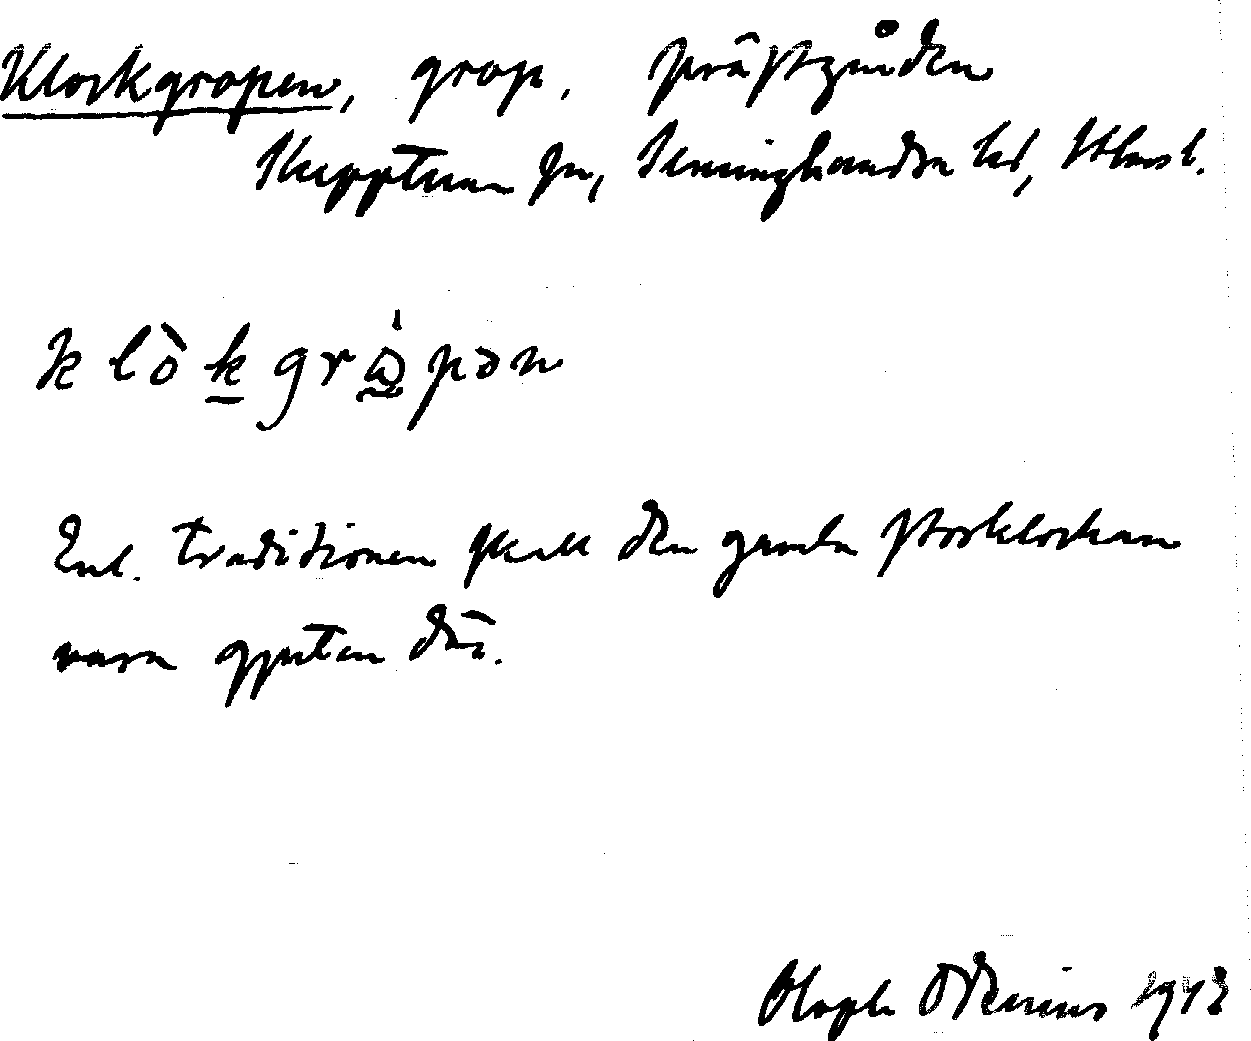 Klockgropen, grop, prästgården
Skepptuna sn, Seminghundra hd, Sthms l.
klòkgrå̀pən
Enl. traditionen skall den gamla storklockan
vara gjuten där.
Oloph Odenius 1942